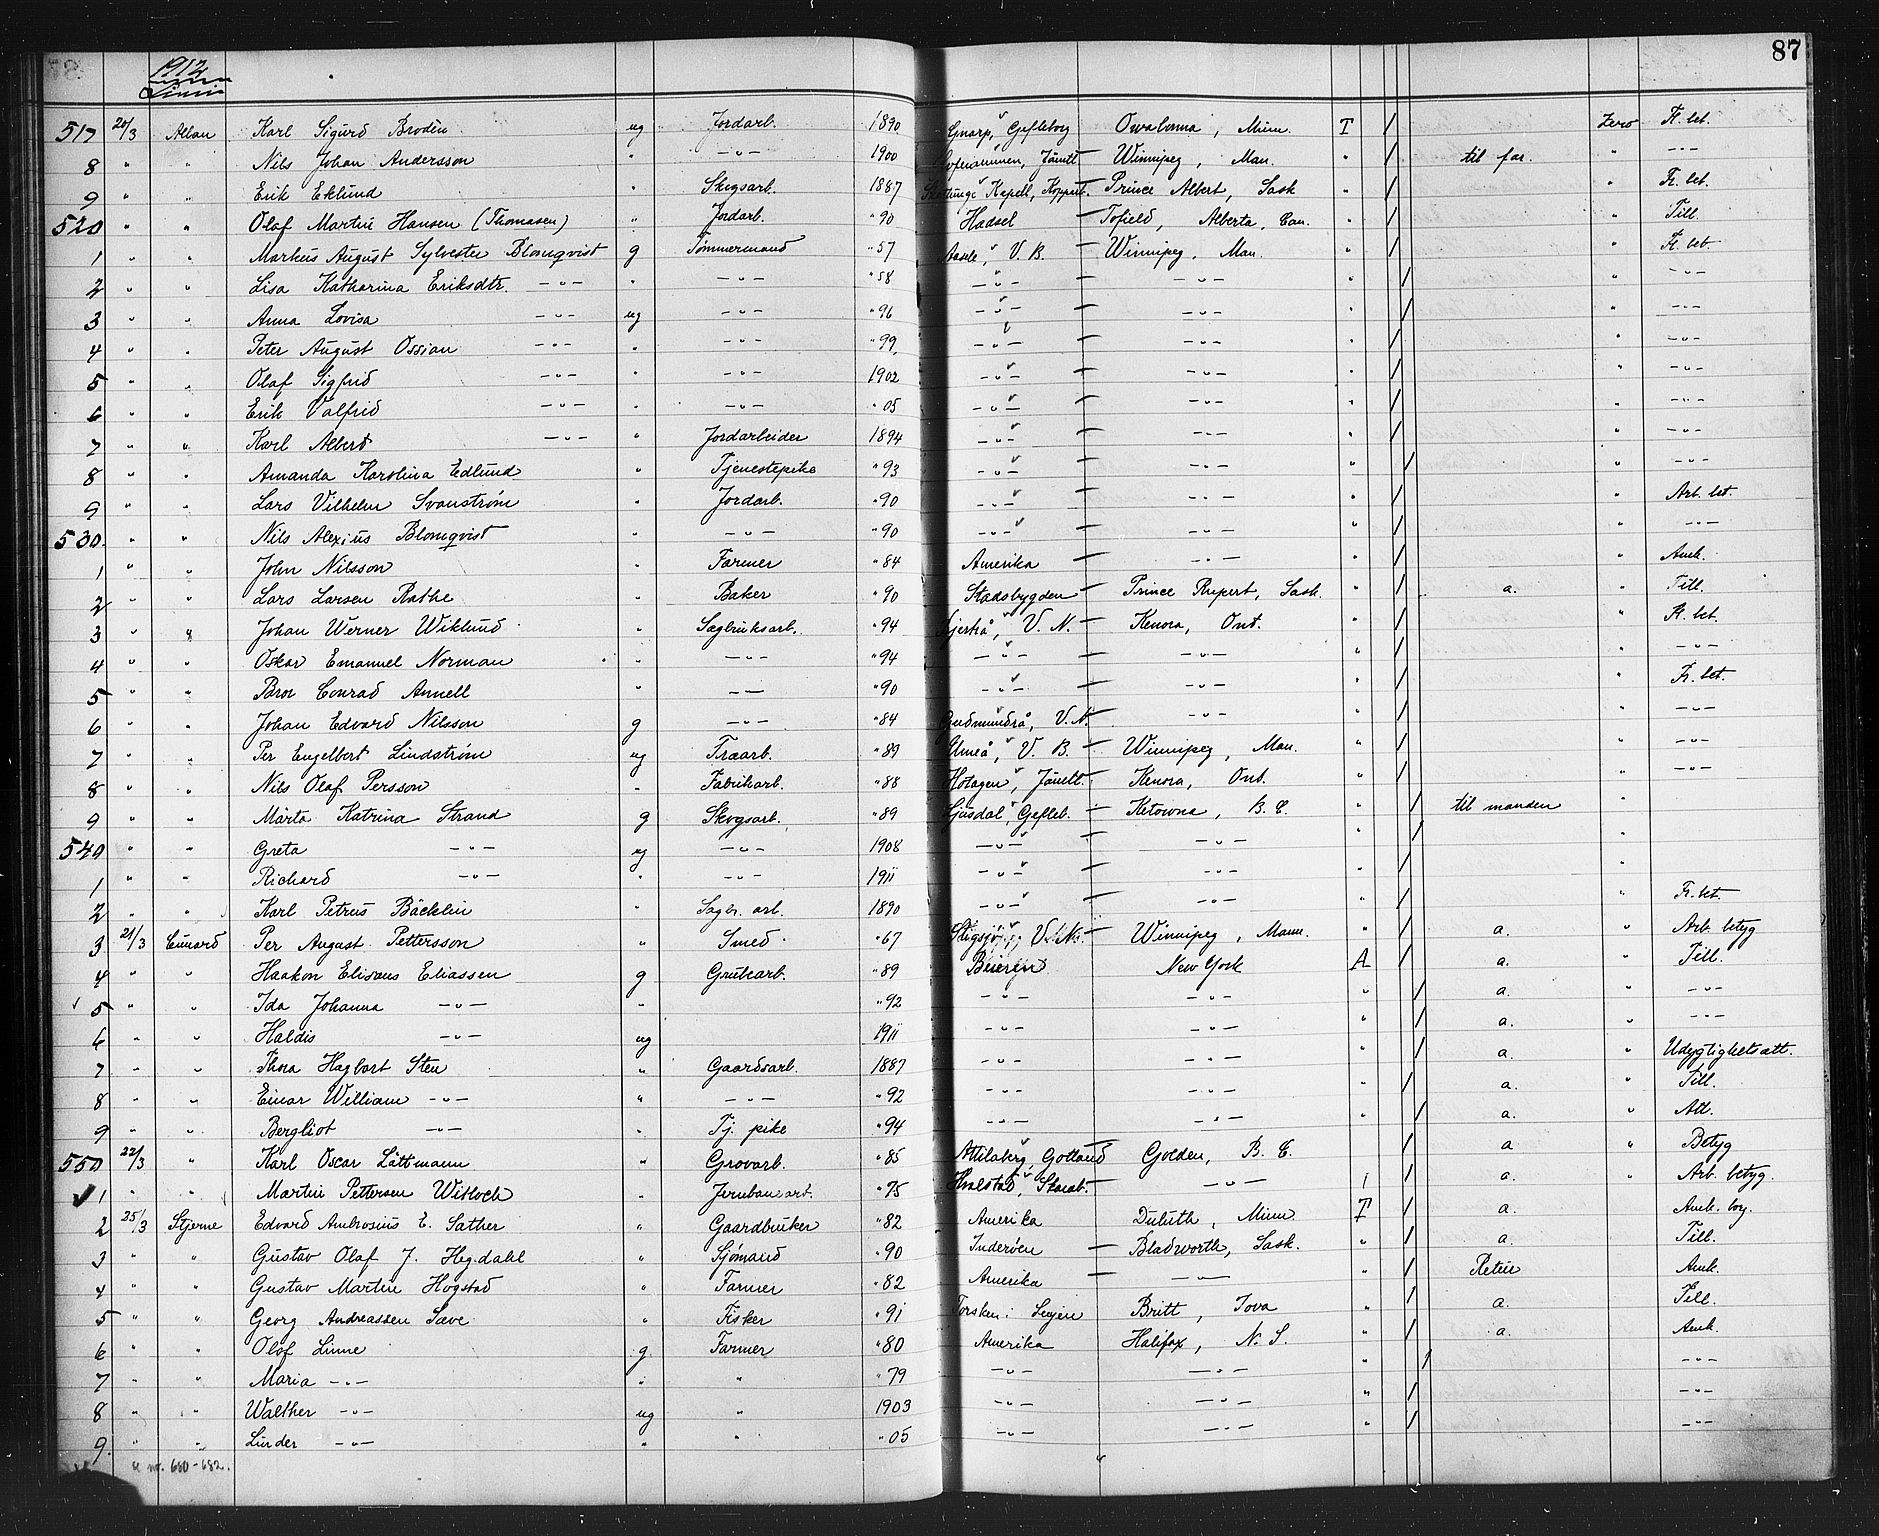 87
1912
Linie
517 20/3 Allan Karl Sigurd Brodèn ug Jordarb. 1890 Gnarp, Gefleborg Owatonna, Minn. T / Zero Fr. bet.
8 " " Nils Johan Andersson " -"- 1900 Winnipeg, Man. " / til far. " -"-
9 " " Erik Eklund " Skogsarb. 1887 Kapell, Koppart. - Prince Albert, Sask " / " Fr. bet.
520 " " Olaf Martin Hansen (Thomasen) " Jordarb. " 90 Hadsel - Tofield, Alberta, Can. " / " Till.
1 " " Markus August Sylvester Blomqvist g Tømmermand " 57 Aasele, V. B. - Winnipeg, Man. " / " Fr. bet.
2 " " Lisa Katharina Eriksdtr. -"- " -"- " 58 -"- - -"- " / " -"-
3 " " Anna Lovisa -"- ug -"- " 96 -"- - -"- " / " -"-
4 " " Peter August Ossian -"- " -"- " 99 -"- - -"- " / " -"-
5 " " Olaf Sigfrid -"- " -"- 1902 -"- - -"- " / " -"-
6 " " Erik Valfrid -"- " -"- " 05 -"- - -"- " / " -"-
7 " " Karl Albert -"- " Jordarbeider 1894 -"- - -"- " / " -"-
8 " " Amanda Karolina Edlund " Tjenestepike " 93 -"- - -"- " / " -"-
9 " " Lars Vilhelm Svanström " Jordarb. " 90 -"- - -"- " / " Arb. bet.
530 " " Nils Alexius Blomqvist " -"- " 90 -"- - -"- " / " -"-
1 " " John Nilsson " Farmer " 84 Amerika - -"- " / " Amk.
2 " " Lars Larsen Rathe " Baker " 90 Stadsbygden - Prince Rupert, Sask. " / a. " Till.
3 " " Johan Werner Wiklund " Sagbruksarb. " 94 V. N. - Kenora, Ont. " / " Fr. bet.
4 " " Oskar Emanuel Norman " -"- " 94 -"- - -"- " / " -"-
5 " " Bror Conrad Annell " -"- " 90 -"- - -"- " / " Fr. bet.
6 " " Johan Edvard Nilsson g -"- " 84 Gudmundrå, V. N. - -"- " / " -"-
7 " " Per Engelbert Lindström ug Træarb. " 89 Umeå, V. B. - Winnipeg, Man. " / " -"-
8 " " Nils Olaf Persson " Fabrikarb. " 88 Hotagen, Jämtl. - Kenora, Ont. " / " -"-
9 " " Märta Katrina Strand g Skogsarb. " 89 Ljusdal, Gefleb. - Ketowna, B. C. " / til manden "
540 " " Greta -"- ug -"- 1908 -"- - -"- " / "
1 " " Richard -"- " -"- 1911 -"- - -"- " / "
2 " " Karl Petrus Bäcklin " Sagbr. arb. 1890 -"- - -"- " / " Fr. bet.
3 21/3 Cunard Per August Pettersson " Smed " 67 Stigsjö, V. N. - Winnipeg, Mann. " / a. " Arb. betyg
4 " " Haakon Elisæus Eliassen g Grubearb. " 89 Beieren New York A / a. " Till.
5 " " Ida Johanna -"- " " 92 -"- -"- " / a. " -"-
6 " " Haldis -"- ug 1911 -"- -"- " / a. " -"-
7 " " Thora Hagbart Sten " Gaardsarb. 1887 -"- -"- " / a. " Udygtighetsatt.
8 " " Einar William -"- " -"- " 92 -"- -"- " / a. " Till.
9 " " Bergliot -"- " Tj. pike " 94 -"- -"- " / a. " Att.
550 22/3 " Karl Oscar Lättmann " Grovarb. " 85 Gotland Golden, B. C. / a " Betyg
1 " " Martin Pettersen Witloch " Jernbanearb. " 75 Skarab. - -"- / a. " Arb. betyg.
2 25/3 Stjerne Edvard Ambrosius E. Sather " Gaardbruker " 82 Amerika Duluth, Minn. T / a. Amk. brg.
3 " " Gustav Olaf J. Hegdahl " Sjømand " 90 Inderøen - Bladworth, Sask. " / a. Till.
4 " " Gustav Martin Hogstad " Farmer " 82 Amerika - -"- " / Retur Amk.
5 " " Georg Andreassen Save " Fisker " 91 Torsken i Senjen Britt, Iova " / a. Till.
6 " " Olof Linne g Farmer " 80 Amerika Halifax, N. S. " / a. Amk.
7 " " Maria -"- " " " 79 -"- -"- " / -"-
8 " " Walther -"- ug " 1903 -"- -"- " / -"-
9. " " Linder -"- " " " 05 -"- -"- " / -"-
u nr. 680-682.